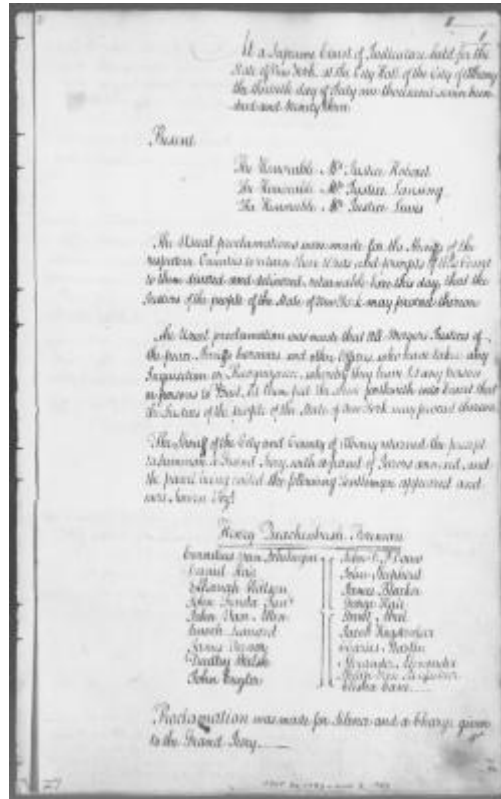 At a Supreme Court of Judicature held for the
State of New York at the City Hall of the City of Albany
the thirtieth day of July one thousand seven hun
dred and Ninety three
Present
The Honorable Mr Justice Hobart
The Honorable Mr Justice Lansing
The Honorable Mr Justice Lewis
The Usual proclamations were made for the Sheriffs of the
respective Counties to return their Writs and precepts of this Court
to them directed and delivered, returnable here this day, that the
Justices of the people of the State of New York may proceed thereon
The Usual proclamation was made that All Justices of
the peace Sheriffs Coroners and other Officers who have taken any
Inquisition or Recognizance, whereby they have let any person
or persons to Bail, let them put the same forthwith into Court that
the Justices of the people of the State of New York may proceed thereon
The Sheriff of the City and County of Albany returned the precept
to summon a Grand Jury, with a panel of Persons annexed, and
the panel being called the following Gentlemen appeared and
were Sworn Viz
Henry Foreman
Cornelius Van
Daniel John
Elkanah Watson John Shepherd
John James
John Van Allen George
Enoch Leonard David
James Jacob
Dudley Walsh Martin
John Cuyler Alexander
Elisha
Proclamation was made for Silence and a Charge given
to the Grand Jury